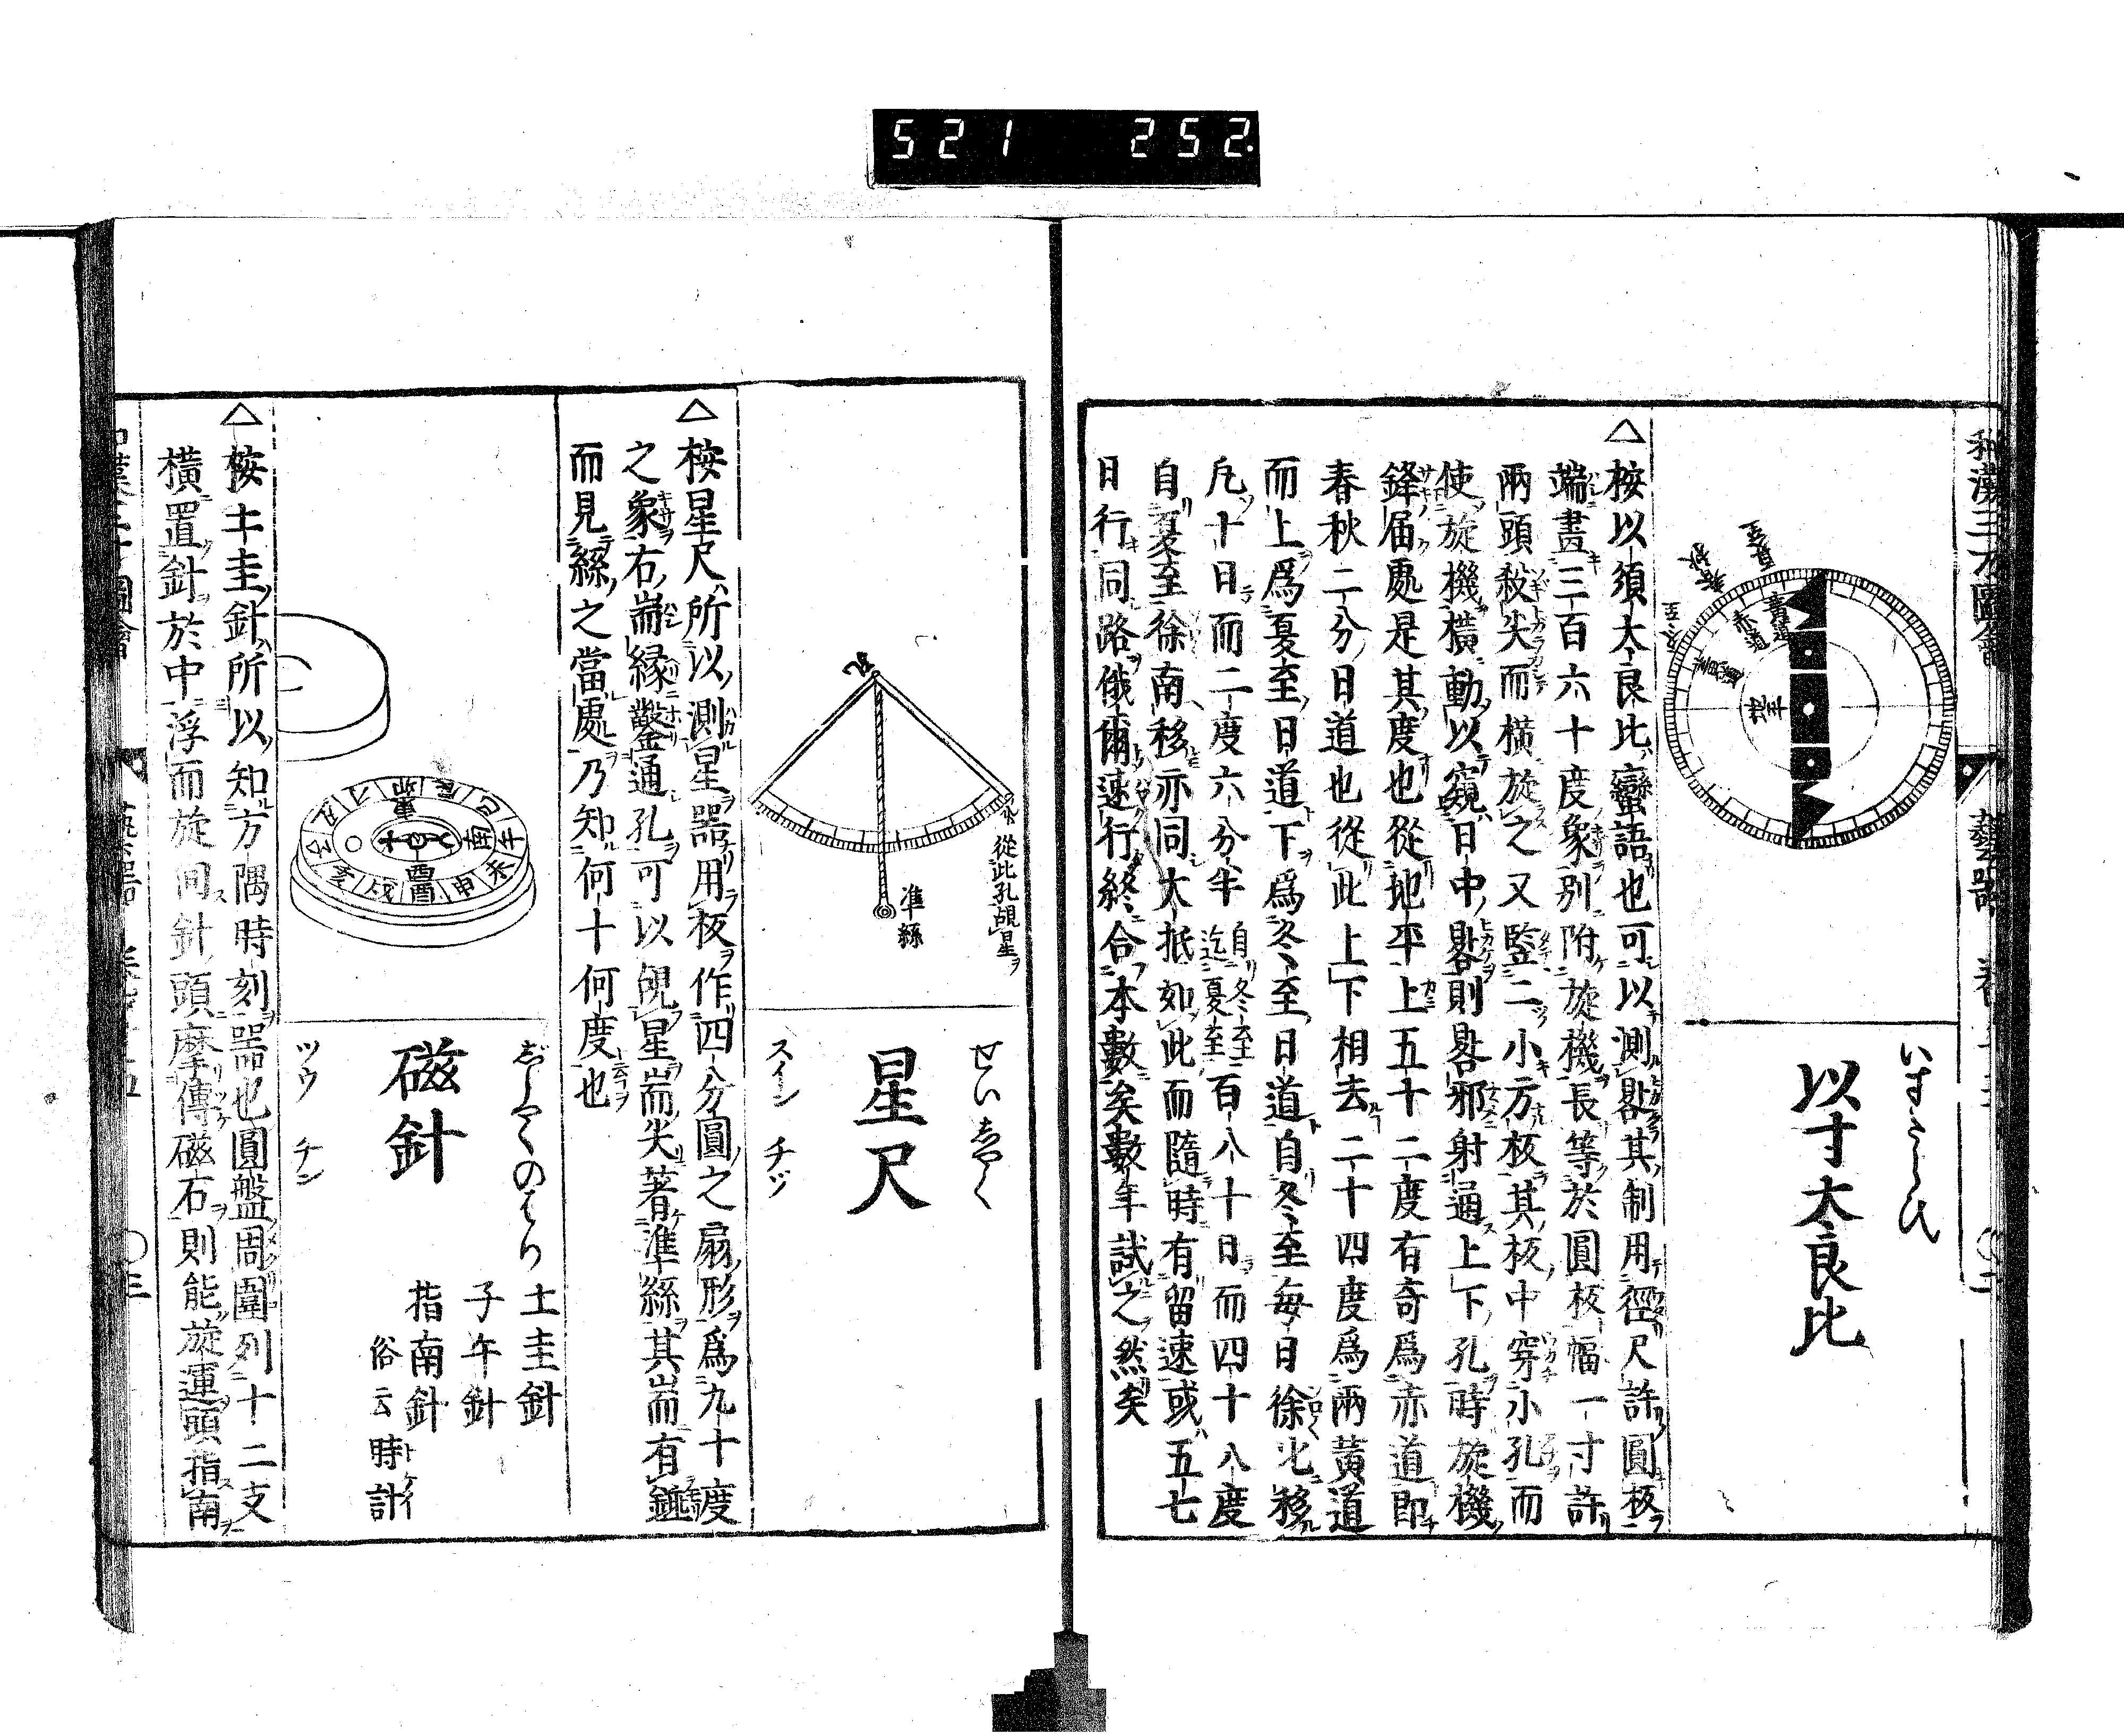 521 252.
和漢三才圖會
藝器
いすたらひ
以寸太良比
夏至
春秋
冬至
黄道
赤道
黄道
地平
△按以須太良比蠻語也可以測晷其制用徑尺許圓板
端畫三百六十度象別附旋機長等於圓板幅一寸許
兩頭殺尖而横旋之又竪二小方板其板中穿小孔而
使旋機横動以窺日中晷則晷邪射通上下孔時旋機
鋒届處是其度也從地平上五十二度有奇爲赤道即
春秋二分日道也從此上下相去二十四度爲兩黄道
而上爲夏至日道下爲冬至日道自冬至毎日徐北移
凡十日而二度六分半自冬至迄夏至百八十日而四十八度
自夏至徐南移亦同大抵如此而隨時有留速或五七
日行同路俄爾速行終合本數矣數年試之然矣
從此孔覘星ヲ
準絲
せいしやく
星尺
スイン チツ
△按星尺所以測星器用板作四分圓之扇形爲九十度
之象右耑縁鑿通孔可以覘星耑尖著準絲其耑有錘
而見絲之當處乃知何十何度也
午
未
申
酉
戌
亥
南
じしやくのはり
磁針
ツウ チン
土圭針
子午針
指南針
俗云時計
トケイ
△按土圭針所以知方隅時刻器也圓盤周圍列十二支
横置針於中浮而旋同針頭摩傳磁石則能旋運頭指南